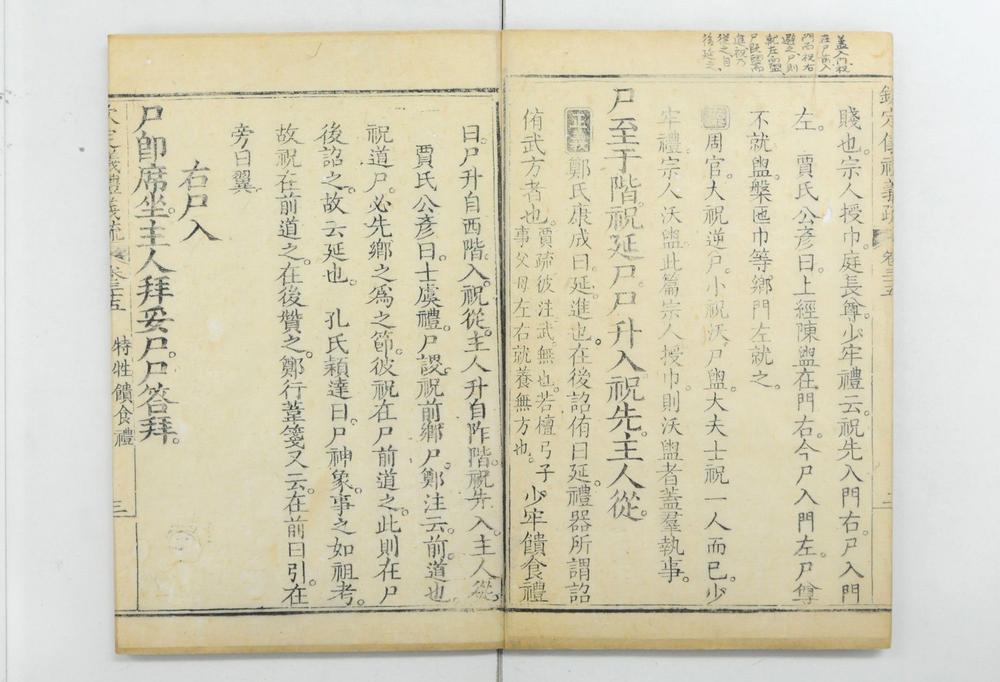 蓋入門祝
在尸南入
門而祝右
避之尸則
就左而盥
尸既盥而
進祝乃
從之自
後延之
欽定儀禮義疏 卷三十五
二
賤也。宗人授巾。庭長尊。少牢禮云。祝先入門右。尸入門
左。 賈氏公彦曰。上經陳盥在門右。今尸入門左。尸尊
不就盥。槃匜巾等。鄉門左就之。
周官。大祝逆尸。小祝沃尸盥。大夫士祝一人而已。少
牢禮。宗人沃盥。此篇宗人授巾。則沃盥者蓋羣執事。
尸至于階。祝延尸。尸升入。祝先。主人從。
正義 鄭氏康成曰。延。進也。在後詔侑曰延。禮器所謂詔
侑武方者也。賈疏彼注武。無也。若檀弓子
事父母左右就養無方也。
少牢饋食禮
曰。尸升自西階。入。祝從。主人升自阼階。祝先入。主人從。
賈氏公彦曰。士虞禮。尸謖。祝前鄉尸。鄭注云。前道也。
祝道尸。必先鄉之爲之節。彼祝在尸前道之。此則在尸
後詔之。故云延也。 孔氏穎達曰。尸神象。事之如祖考。
故祝在前道之。在後贊之。鄭行葦箋又云。在前曰引。在
旁曰翼。
右尸入
尸卽席坐。主人拜妥尸。尸答拜。
欽定儀禮義疏 卷三十五 特牲饋食禮
三